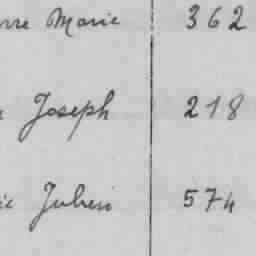 Marie 362
Joseph 218
Julien 574